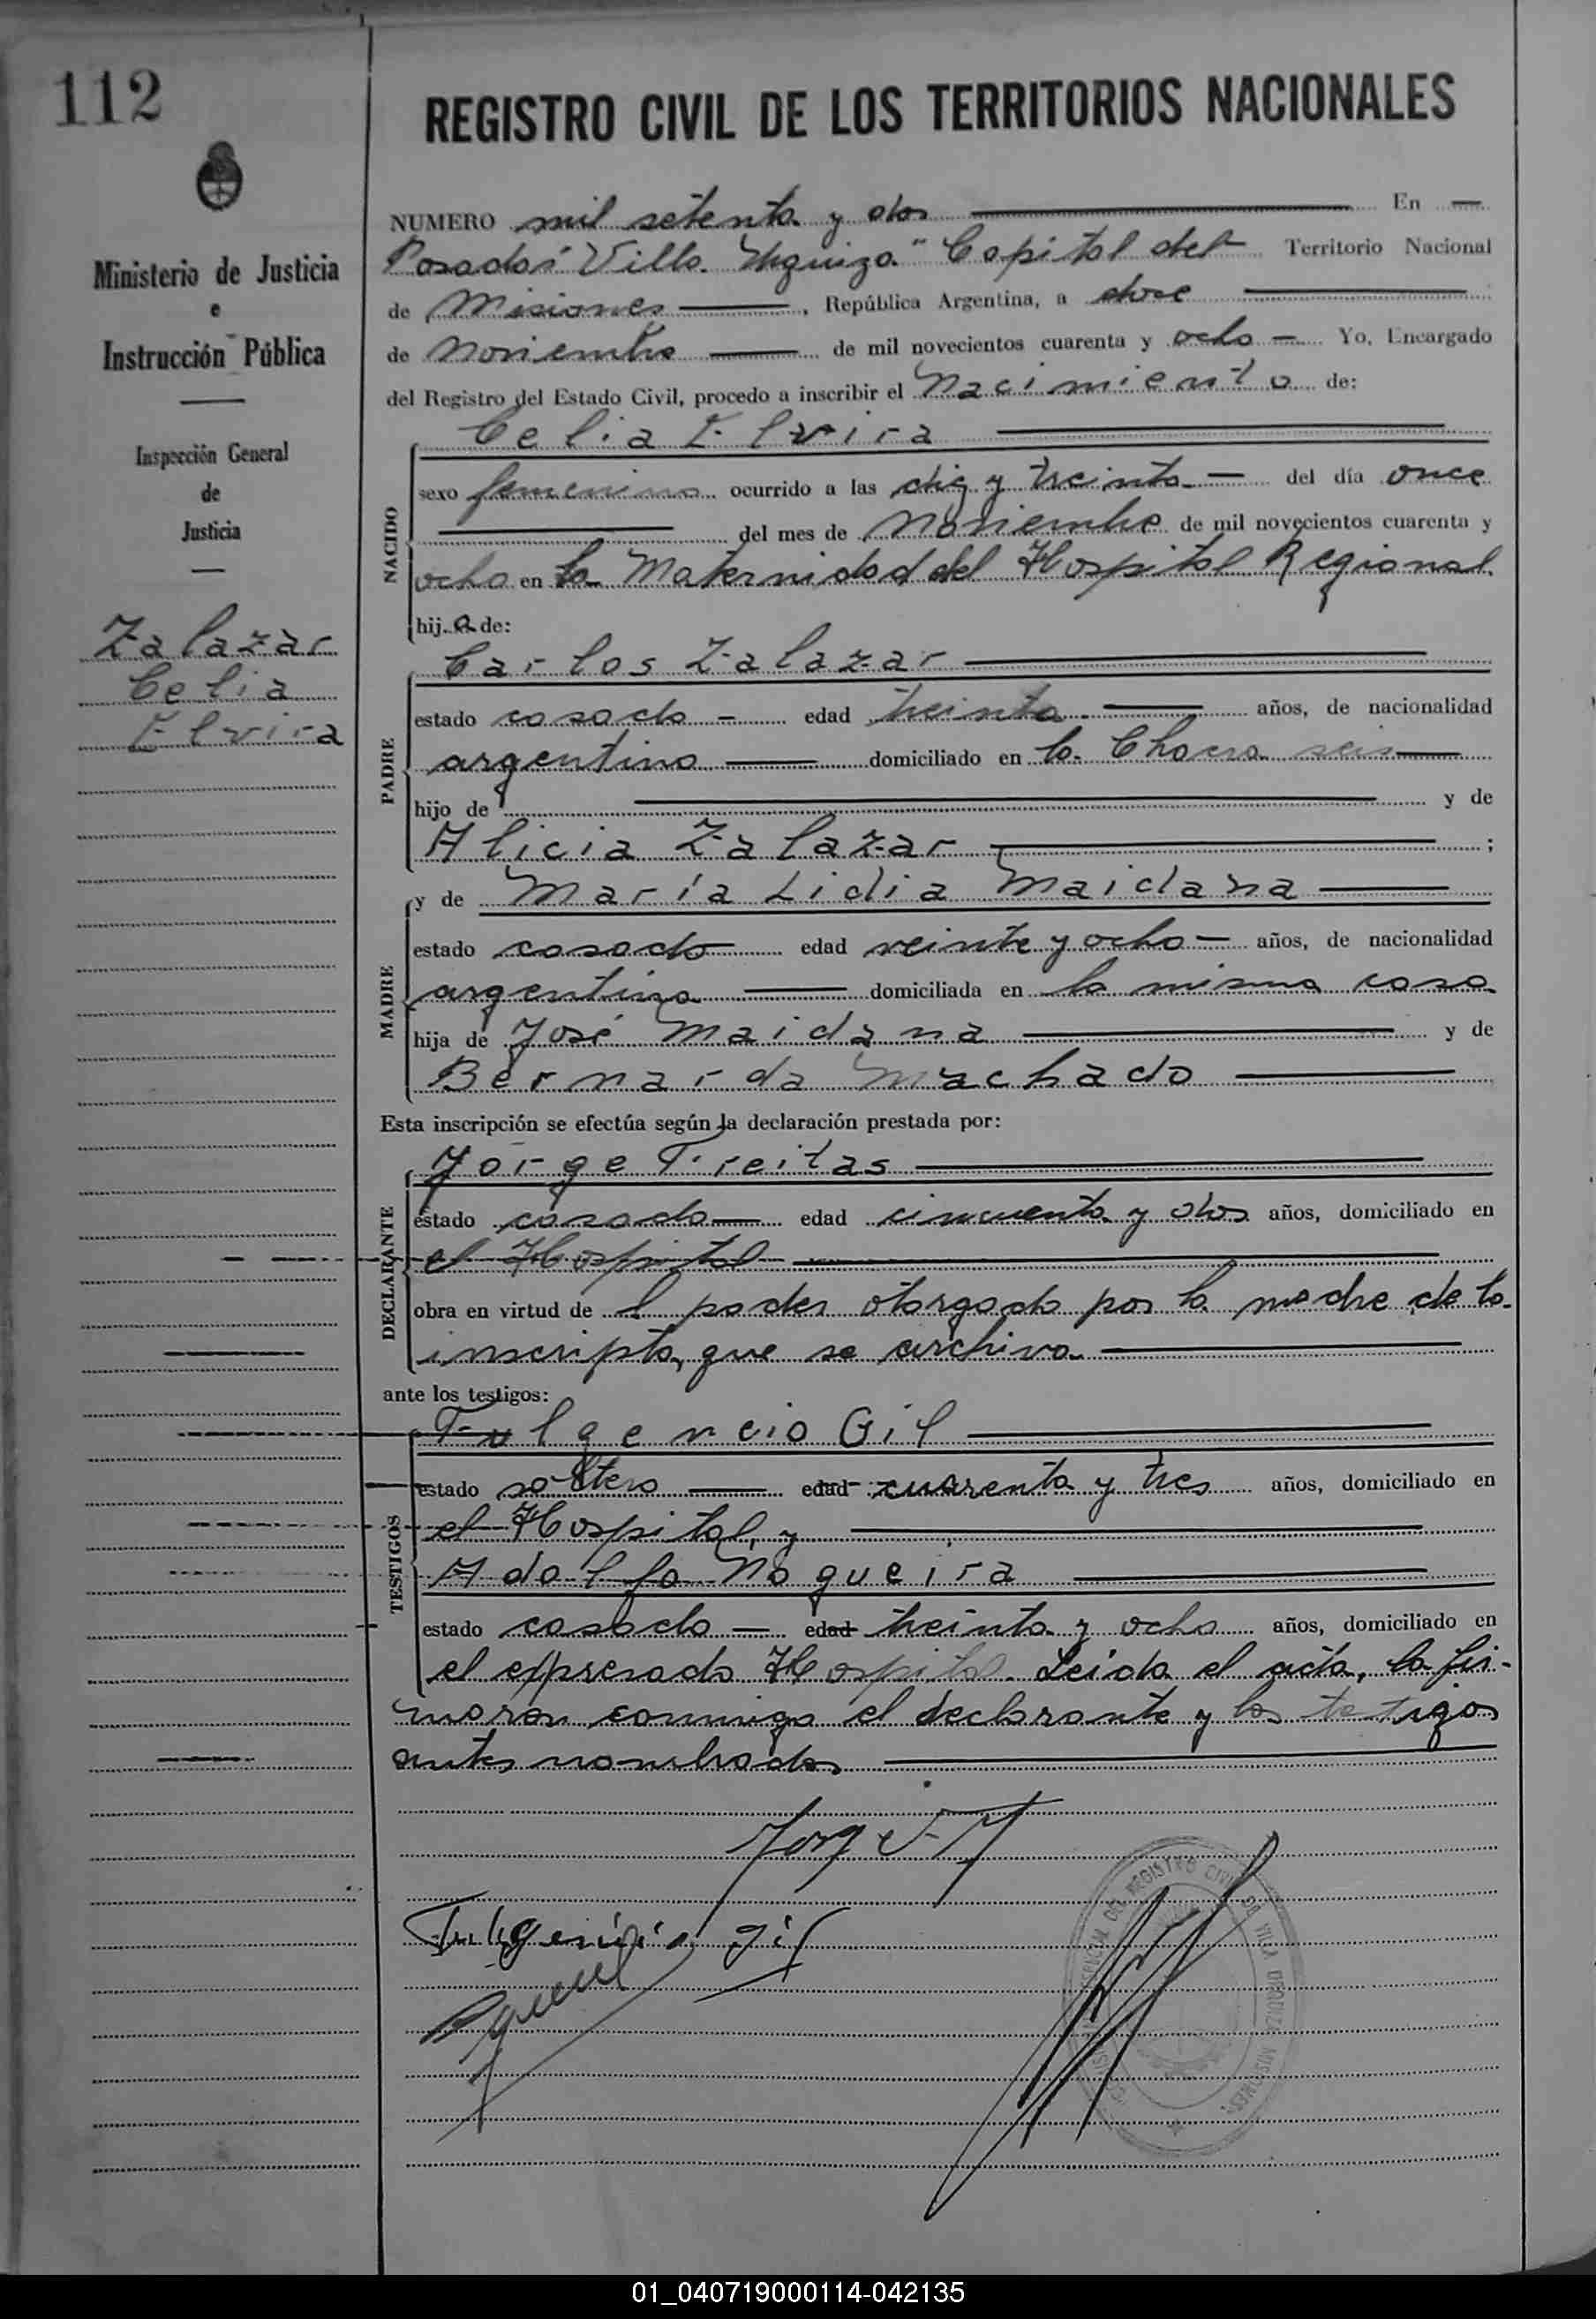 112
Ministerio de Justicia
e
Instrucción Pública
Inspección General
de
Justicia
Zalazar
Celia
Elvira
REGISTRO CIVIL DE LOS TERRITORIOS NACIONALES
NUMERO mil setenta y dos En
Posadas "Villa Urquiza" Capital del Territorio Nacional
de Misiones, República Argentina, a doce
de Noviembre de mil novecientos cuarenta y ocho Yo, Encargado
del Registro del Estado Civil, procedo a inscribir el Nacimiento de:
Celia Elvira
NACIDO
sexo femenino ocurrido a las diez y treinta del día once
del mes de Noviembre de mil novecientos cuarenta y
ocho en la Maternidad del Hospital Regional
hija de:
Carlos Zalazar
PADRE
estado casado edad treinta años, de nacionalidad
argentino domiciliado en la Chacra seis
hijo de y de
Alicia Zalazar ;
y de María Lidia Maidana
MADRE
estado casada edad veinte y ocho años, de nacionalidad
argentina domiciliada en la misma casa
hija de José Maidana y de
Bernarda Machado
Esta inscripción se efectúa según la declaración prestada por:
Jorge Freitas
DECLARANTE
estado casado edad cincuenta y dos años, domiciliado en
el Hospital
obra en virtud del poder otorgado por la madre de la
inscripta, que se archiva
ante los testigos:
Fulgencio Gil
TESTIGOS
estado soltero edad cuarenta y tres años, domiciliado en
el Hospital, y
Adolfo Nogueira
estado casado edad treinta y ocho años, domiciliado en
el expresado Hospital. Leída el acta, la fir-
maron conmigo el declarante y los testigos
antes nombrados
Fulgencio Gil
DEL REGISTRO CIVIL DE VILLA URQUIZA MISIONES
01_040719000114-042135